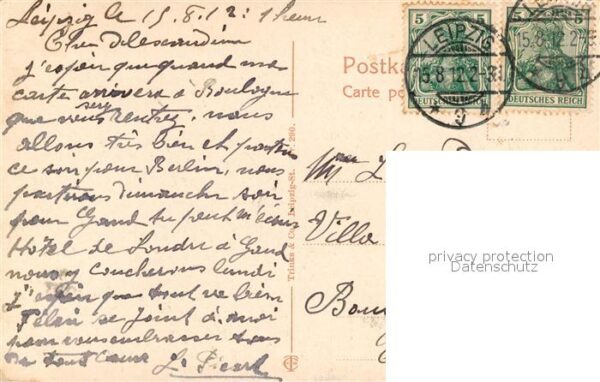 Leipzig le 15.8.12: 1 heure
j'espère que quand ma
carte arrivera à Boulogne
que vous serez rentrez, nous
allons très bien et partons
ce soir pour Berlin, nous
partirons dimanche soir
pour Gand
Hotel de Londre à Gand
nous y coucherons lundi
j'espère que tout va bien
se joint à moi
pour vous embrasser tous
de tout cœur
L. Picart
Trinks & Co., Leipzig-St. 290.
5 5
LEIPZIG
15.8.12.2-3N
DEUTSCHES REICH
5
LEIPZIG
15.8.12.2-3
DEUTSCHES REICH
Postka
Carte po
Villa
Bou
privacy protection
Datenschutz